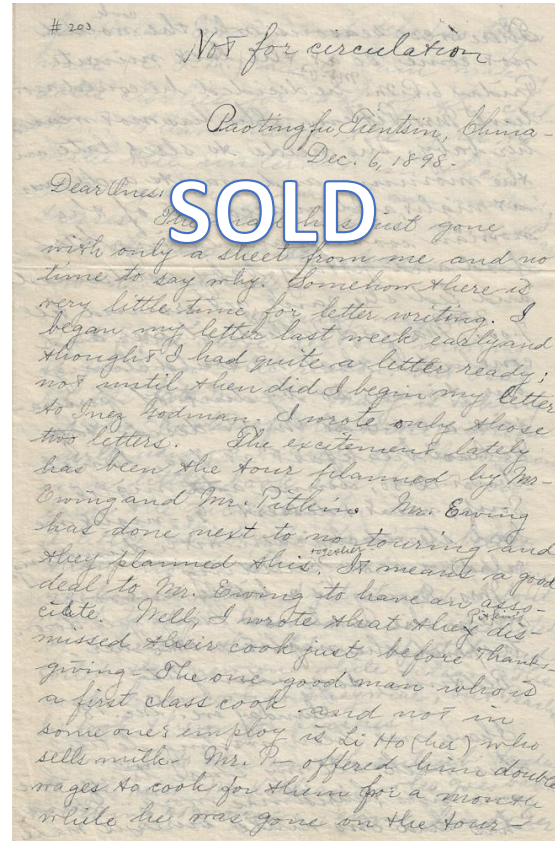 # 203
Not for circulation
Paotingfu Tientsin, China -
Dec. 6, 1898 -
Dear Ones:
SOLD
The has just gone
with only a sheet from me and no
time to say why. Somehow there is
very little time for letter writing. I
began my letter last week early and
thought I had quite a letter ready;
not until then did I begin my letter
to Inez Godman. I wrote only those
two letters. The excitement lately
has been the tour planned by Mr-
Ewing and Mr. Pitkin. Mr. Ewing
has done next to no touring and
they planned this together. It means a good
deal to Mr. Ewing to have an asso-
ciate. Well, I wrote that they dis-
missed their cook just before Thanks-
giving - The one good man who is
a first class cook and not in
some ones employ is Li Ho (her) who
sells milk - Mr. P - offered him double
wages to cook for them for a month
while he was gone on the tour -